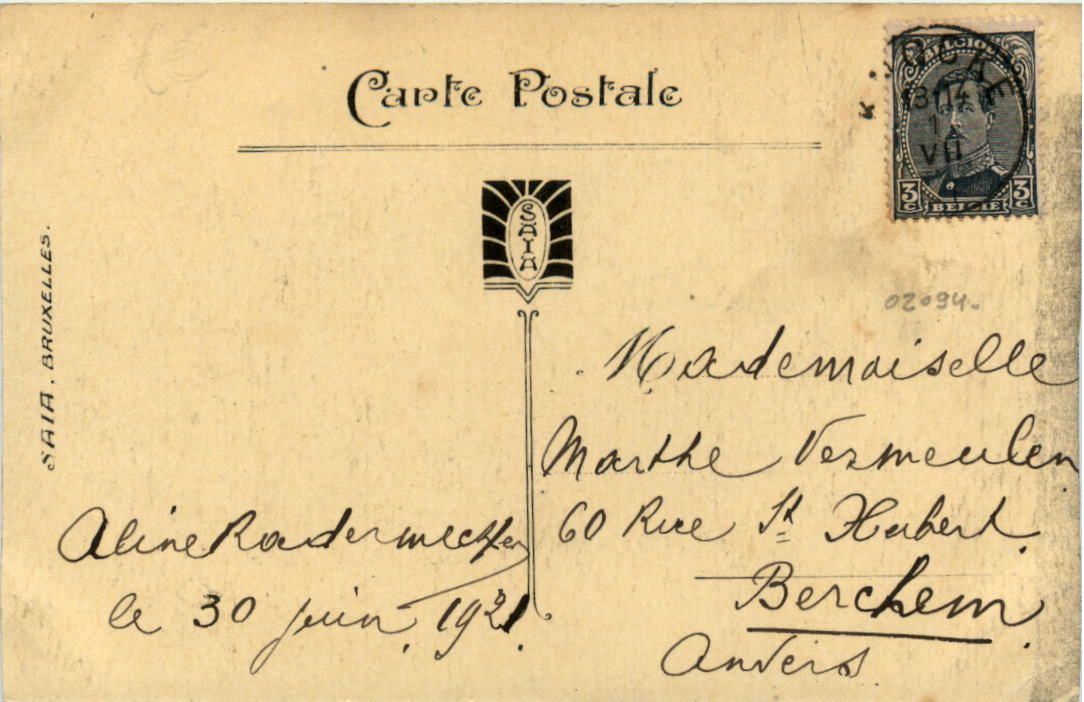 Carte Postale
BELGIQUE
VII
3 C
3 C
BELGIË
SAIA
SAIA, BRUXELLES.
02094.
Mademoiselle
Marthe Vermeulen
60 Rue St Hubert
Berchem
Anvers
Aline Radermecker
le 30 juin 1921.